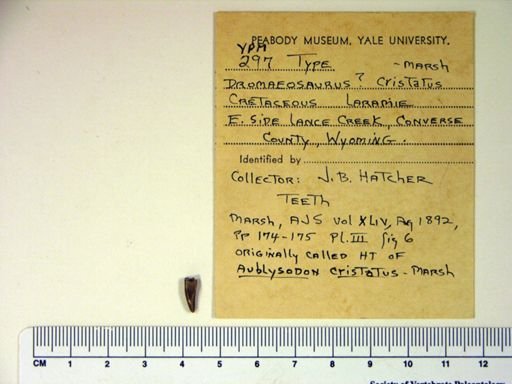 PEABODY MUSEUM, YALE UNIVERSITY.
YPM
297 TYPE - MARSH
DROMAEOSAURUS? CRISTATUS
CRETACEOUS LARAMIE
E. SIDE LANCE CREEK, CONVERSE
COUNTY, WYOMING.
Identified by
COLLECTOR: J. B. HATCHER
TEETH
MARSH, AJS VOL XLIV, Ag 1892,
PP 174-175 Pl. III fig 6
ORIGINALLY CALLED HT OF
AUBLYSODON CRISTATUS - MARSH
CM 1 2 3 4 5 6 7 8 9 10 11 12
Society of Vertebrate Paleontology